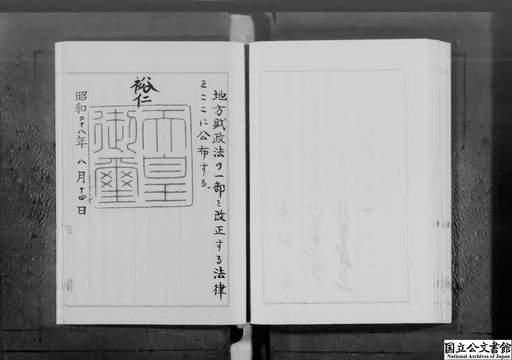 地方財政法の一部を改正する法律
をここに公布する。
裕仁
天皇
御璽
昭和二十八年八月十四日
国立公文書館
National Archives of Japan